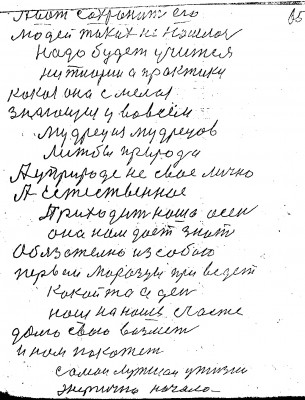 65
А вот сохранить его
людей таких не нашлося
Надо будет учится
ни тиории а практики
какая она смелая
знающия у во всём
Мудрец из мудрецов
Литбы природы
А у природе не свое лично
А естественное
Приходит наша осен
она нам дает знат
Обязателно из собою
первыи морозы при ведет
Какой то се ден
наш на наше счасте
домо свою возмет
и нам покажет
самои лутшаи у жизни
энергично начало